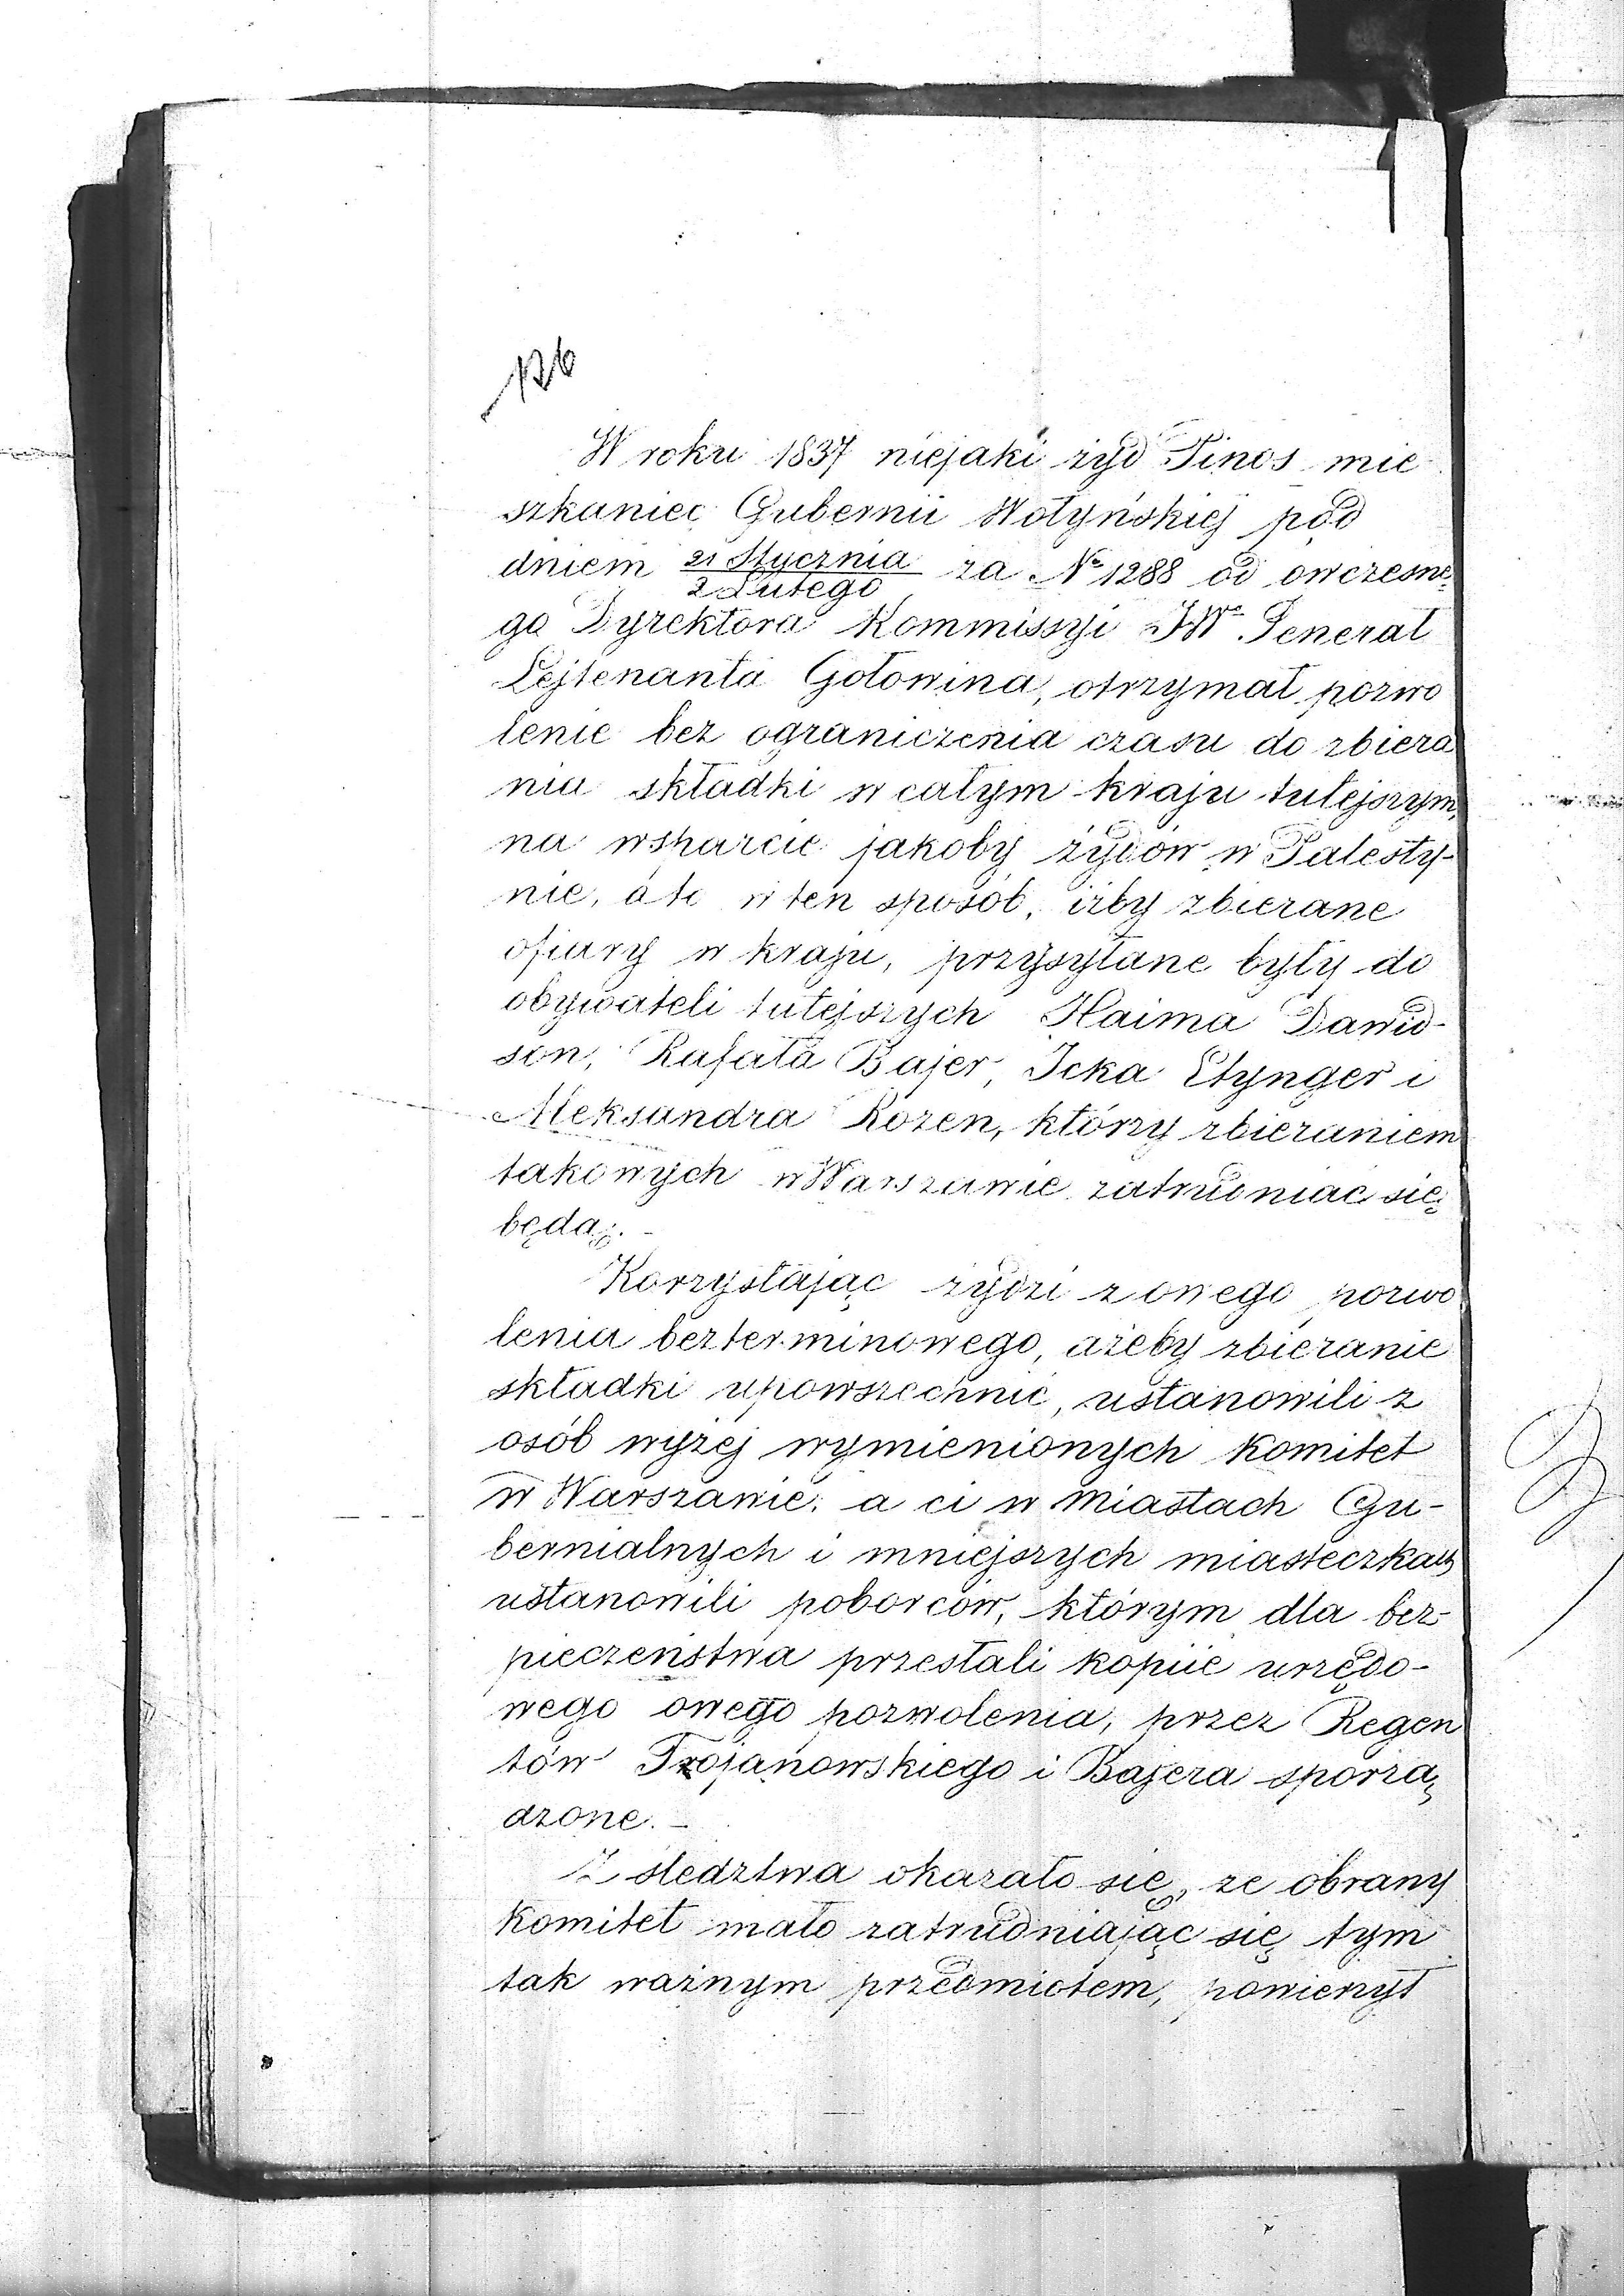 126
W roku 1837 niejaki żyd Pinos mie
szkaniec Gubernii Wołyńskiej pod
dniem 21 Stycznia / 2 Lutego za Nº 1288 od ówczesne-
go Dyrektora Kommissyi JWº Jenerał
Lejtenanta Gołowina, otrzymał pozwo
lenie bez ograniczenia czasu do zbiera
nia składki w całym kraju tutejszym,
na wsparcie jakoby żydów w Palesty-
nie, a to w ten sposób, iżby zbierane
ofiary w kraju, przysyłane były do
obywateli tutejszych Haima Dawid-
son, Rafała Bajer, Icka Etynger i
Aleksandra Rozen, którzy zbieraniem
takowych w Warszawie zatrudniać się
będą. -
Korzystając żydzi z owego pozwo
lenia bezterminowego, ażeby zbieranie
składki upowszechnić, ustanowili z
osób wyżej wymienionych Komitet
w Warszawie; a ci w miastach Gu-
bernialnych i mniejszych miasteczkach
ustanowili poborców, którym dla bez-
pieczeństwa przesłali kopiie urzędo-
wego owego pozwolenia, przez Regen
tów Trojanowskiego i Bajera sporzą
dzone. -
Z śledztwa okazało się, że obrany
Komitet mało zatrudniając się tym
tak ważnym przedmiotem, powierzył